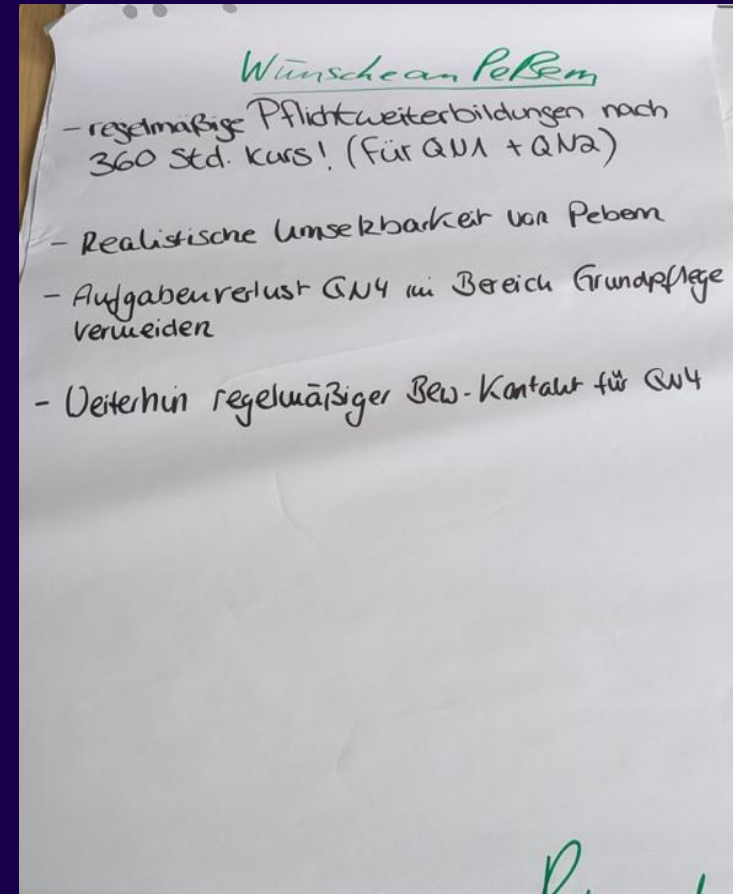 Wünsche an PeBem
- regelmäßige Pflichtweiterbildungen nach
360 Std. Kurs! (Für QN1 + QN2)
- Realistische Umsetzbarkeit von Pebem
- Aufgabenverlust QN4 im Bereich Grundpflege
vermeiden
- Weiterhin regelmäßiger Bew.-Kontakt für QN4